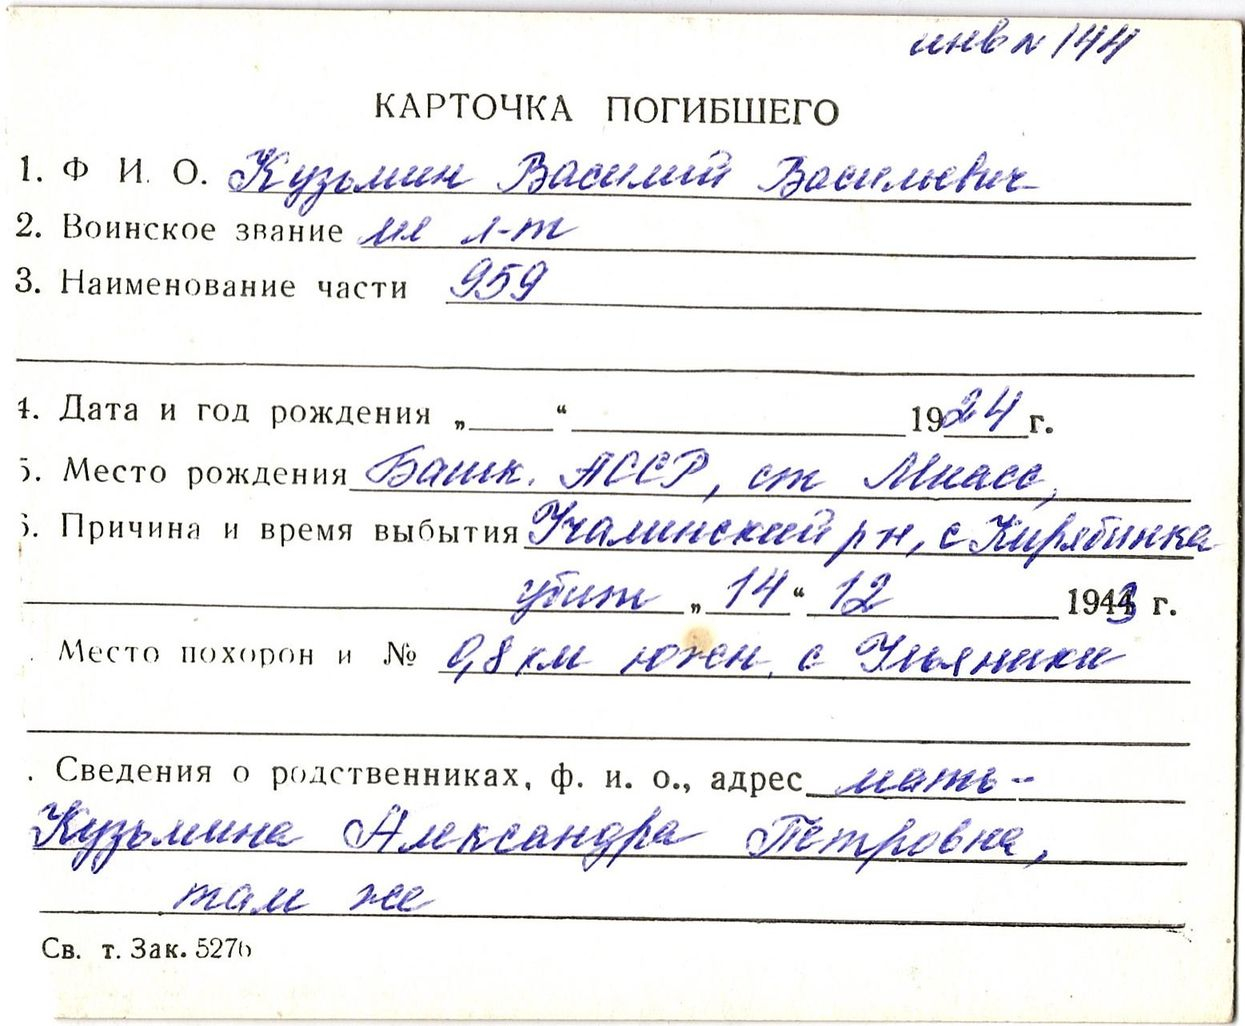 инв № 144
КАРТОЧКА ПОГИБШЕГО
1. Ф И. О. Кузьмин Василий Васильевич
2. Воинское звание мл л-т
3. Наименование части 959
4. Дата и год рождения „ “ 1924 г.
5. Место рождения Башк. АССР, ст Миасс,
6. Причина и время выбытия Учалинский р-н, с Кирябинка
убит „ 14 “ 12 1943 г.
. Место похорон и № 0,8 км южн. с
. Сведения о родственниках, ф. и. о., адрес мать -
Кузьмина Александра Петровна,
там же
Св. т. Зак. 5276